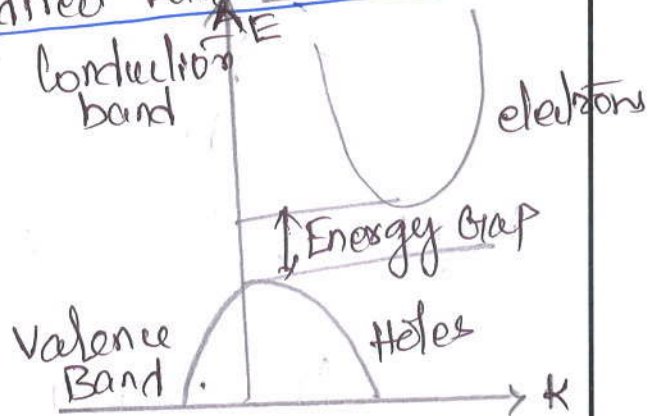 E
Conduction
band
electrons
Energy Gap
Valence
Band
Holes
K